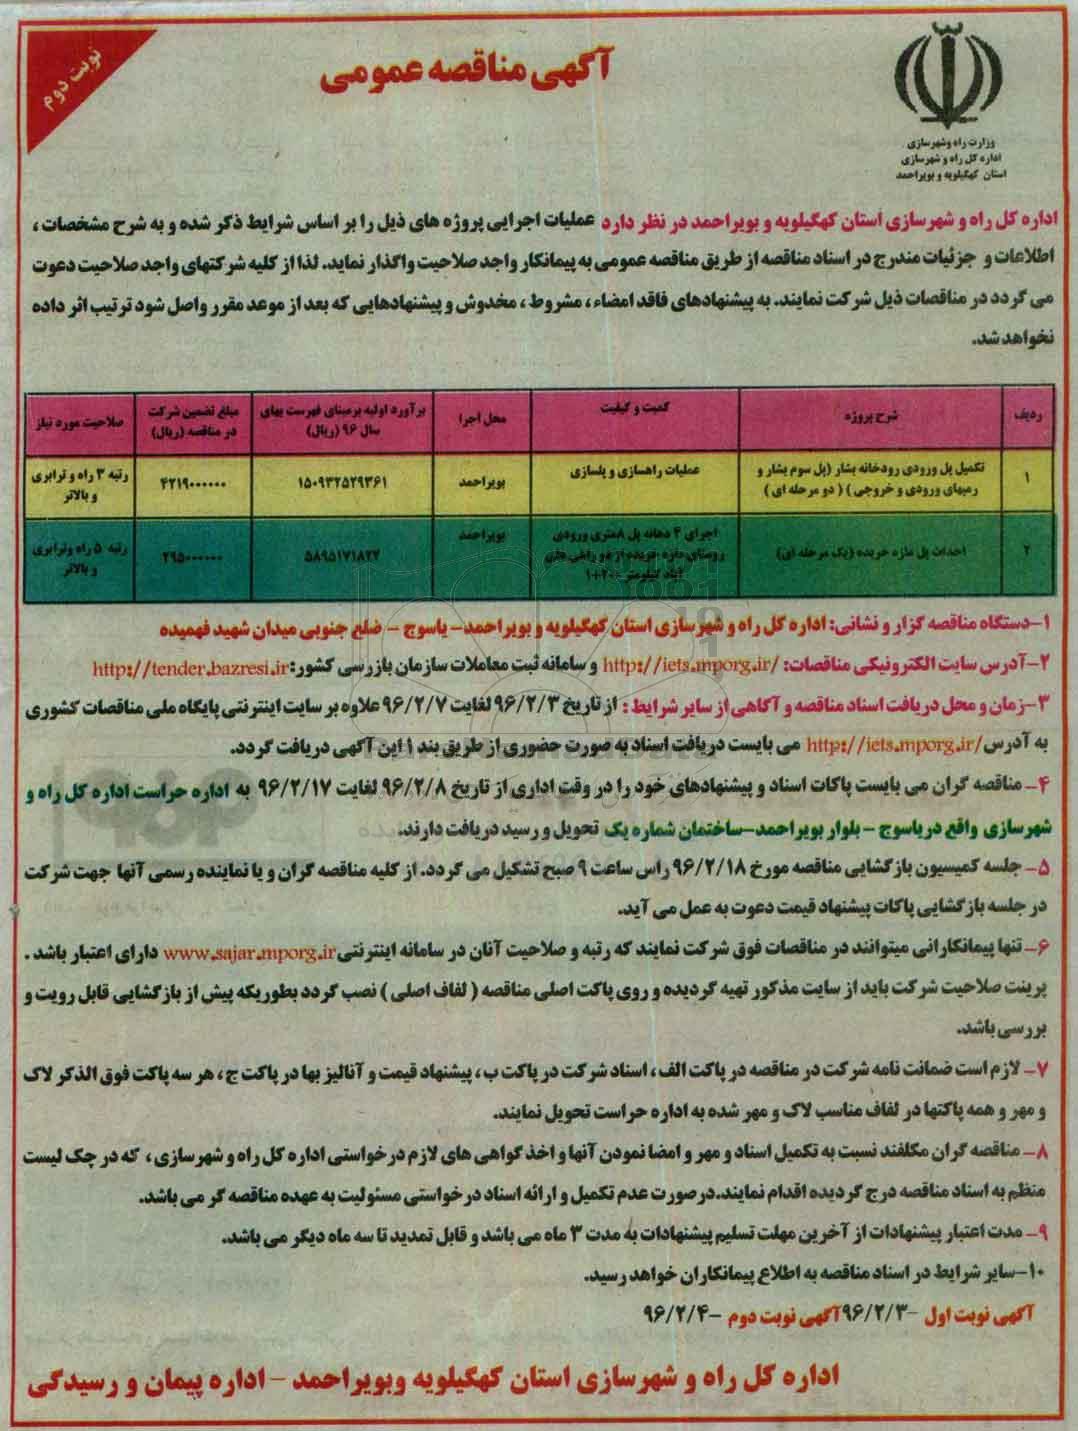 نوبت دوم
آگهی مناقصه عمومی
وزارت راه وشهرسازی
اداره کل راه و شهرسازی
استان کهگیلویه و بویراحمد
اداره کل راه و شهرسازی استان کهگیلویه و بویراحمد در نظر دارد عملیات اجرایی پروژه های ذیل را بر اساس شرایط ذکر شده و به شرح مشخصات ،
اطلاعات و جزئیات مندرج در اسناد مناقصه از طریق مناقصه عمومی به پیمانکار واجد صلاحیت واگذار نماید. لذا از کلیه شرکتهای واجد صلاحیت دعوت
می گردد در مناقصات ذیل شرکت نمایند. به پیشنهادهای فاقد امضاء ، مشروط ، مخدوش و پیشنهادهایی که بعد از موعد مقرر واصل شود ترتیب اثر داده
نخواهد شد.
ردیف | شرح پروژه | کمیت و کیفیت | محل اجرا | برآورد اولیه برمبنای فهرست بهای سال ۹۶ (ریال) | مبلغ تضمین شرکت در مناقصه (ریال) | صلاحیت مورد نیاز
۱ | تکمیل پل ورودی رودخانه بشار (پل سوم بشار و رمپهای ورودی و خروجی ) ( دو مرحله ای ) | عملیات راهسازی و پلسازی | بویراحمد | ۱۵۰۹۳۲۵۲۹۳۶۱ | ۴۲۱۹۰۰۰۰۰۰ | رتبه ۳ راه و ترابری و بالاتر
۲ | احداث پل مازه خریده (یک مرحله ای) | اجرای ۴ دهانه پل ۸متری ورودی روستای مازه خریده از دو راهی آباد کیلومتر ۲۰۰+۱ | بویراحمد | ۵۸۹۵۱۷۱۸۲۷ | ۲۹۵۰۰۰۰۰۰ | رتبه ۵ راه وترابری و بالاتر
۱-دستگاه مناقصه گزار و نشانی: اداره کل راه و شهرسازی استان کهگیلویه و بویراحمد- یاسوج - ضلع جنوبی میدان شهید فهمیده
۲-آدرس سایت الکترونیکی مناقصات: http://iets.mporg.ir/ و سامانه ثبت معاملات سازمان بازرسی کشور: http://tender.bazresi.ir
۳-زمان و محل دریافت اسناد مناقصه و آگاهی از سایر شرایط : از تاریخ ۹۶/۲/۳ لغایت ۹۶/۲/۷ علاوه بر سایت اینترنتی پایگاه ملی مناقصات کشوری
به آدرس http://iets.mporg.ir/ می بایست دریافت اسناد به صورت حضوری از طریق بند ۱ این آگهی دریافت گردد.
۴- مناقصه گران می بایست پاکات اسناد و پیشنهادهای خود را در وقت اداری از تاریخ ۹۶/۲/۸ لغایت ۹۶/۲/۱۷ به اداره حراست اداره کل راه و
شهرسازی واقع دریاسوج - بلوار بویراحمد-ساختمان شماره یک تحویل و رسید دریافت دارند.
۵- جلسه کمیسیون بازگشایی مناقصه مورخ ۹۶/۲/۱۸ راس ساعت ۹ صبح تشکیل می گردد. از کلیه مناقصه گران و یا نماینده رسمی آنها جهت شرکت
در جلسه بازگشایی پاکات پیشنهاد قیمت دعوت به عمل می آید.
۶- تنها پیمانکارانی میتوانند در مناقصات فوق شرکت نمایند که رتبه و صلاحیت آنان در سامانه اینترنتی www.sajar.mporg.ir دارای اعتبار باشد .
پرینت صلاحیت شرکت باید از سایت مذکور تهیه گردیده و روی پاکت اصلی مناقصه ( لفاف اصلی ) نصب گردد بطوریکه پیش از بازگشایی قابل رویت و
بررسی باشد.
۷- لازم است ضمانت نامه شرکت در مناقصه در پاکت الف ، اسناد شرکت در پاکت ب ، پیشنهاد قیمت و آنالیز بها در پاکت ج ، هر سه پاکت فوق الذکر لاک
و مهر و همه پاکتها در لفاف مناسب لاک و مهر شده به اداره حراست تحویل نمایند.
۸- مناقصه گران مکلفند نسبت به تکمیل اسناد و مهر و امضا نمودن آنها و اخذ گواهی های لازم درخواستی اداره کل راه و شهرسازی ، که در چک لیست
منظم به اسناد مناقصه درج گردیده اقدام نمایند.درصورت عدم تکمیل و ارائه اسناد درخواستی مسئولیت به عهده مناقصه گر می باشد.
۹- مدت اعتبار پیشنهادات از آخرین مهلت تسلیم پیشنهادات به مدت ۳ ماه می باشد و قابل تمدید تا سه ماه دیگر می باشد.
۱۰-سایر شرایط در اسناد مناقصه به اطلاع پیمانکاران خواهد رسید.
آگهی نوبت اول -۹۶/۲/۳ آگهی نوبت دوم -۹۶/۲/۴
اداره کل راه و شهرسازی استان کهگیلویه وبویراحمد - اداره پیمان و رسیدگی